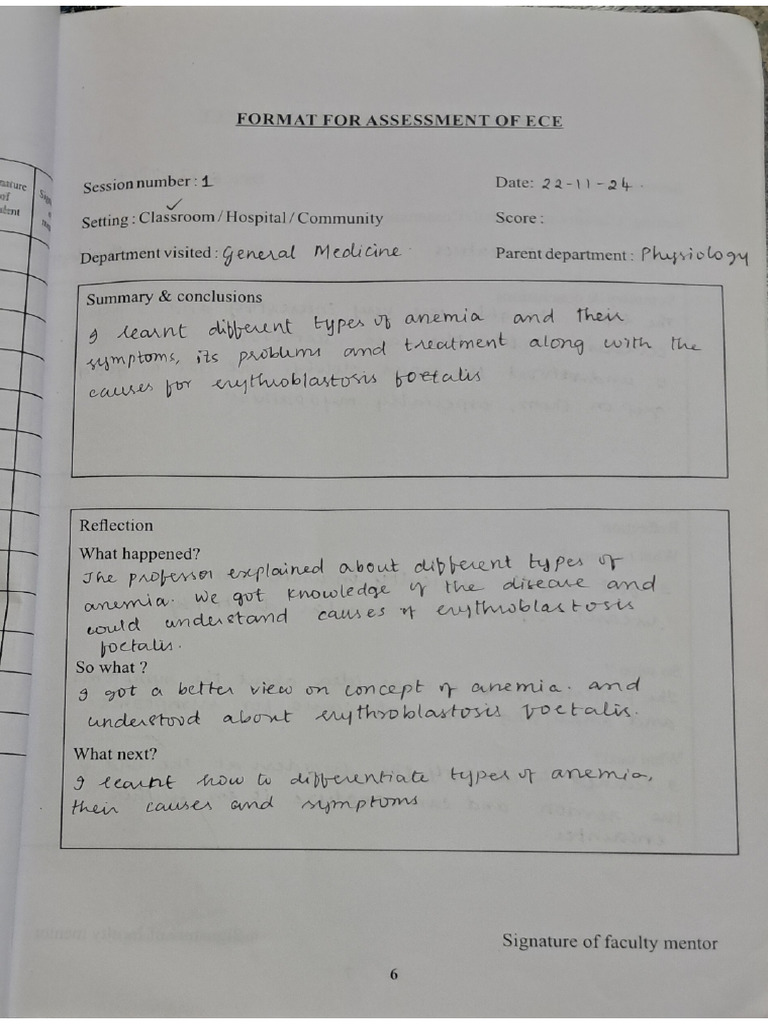 FORMAT FOR ASSESSMENT OF ECE
nature
of
dent
Session number : 1
Date: 22-11-24.
Setting : Classroom / Hospital / Community
Score :
Department visited : General Medicine
Parent department : Physiology
Summary & conclusions
I learnt different types of anemia and their
symptoms, its problems and treatment along with the
causes for erythroblastosis foetalis
Reflection
What happened?
The professor explained about different types of
anemia. We got knowledge of the disease and
could understand causes of erythroblastosis
foetalis.
So what ?
I got a better view on concept of anemia. and
understood about erythroblastosis foetalis.
What next?
I learnt how to differentiate types of anemia,
their causes and symptoms
Signature of faculty mentor
6